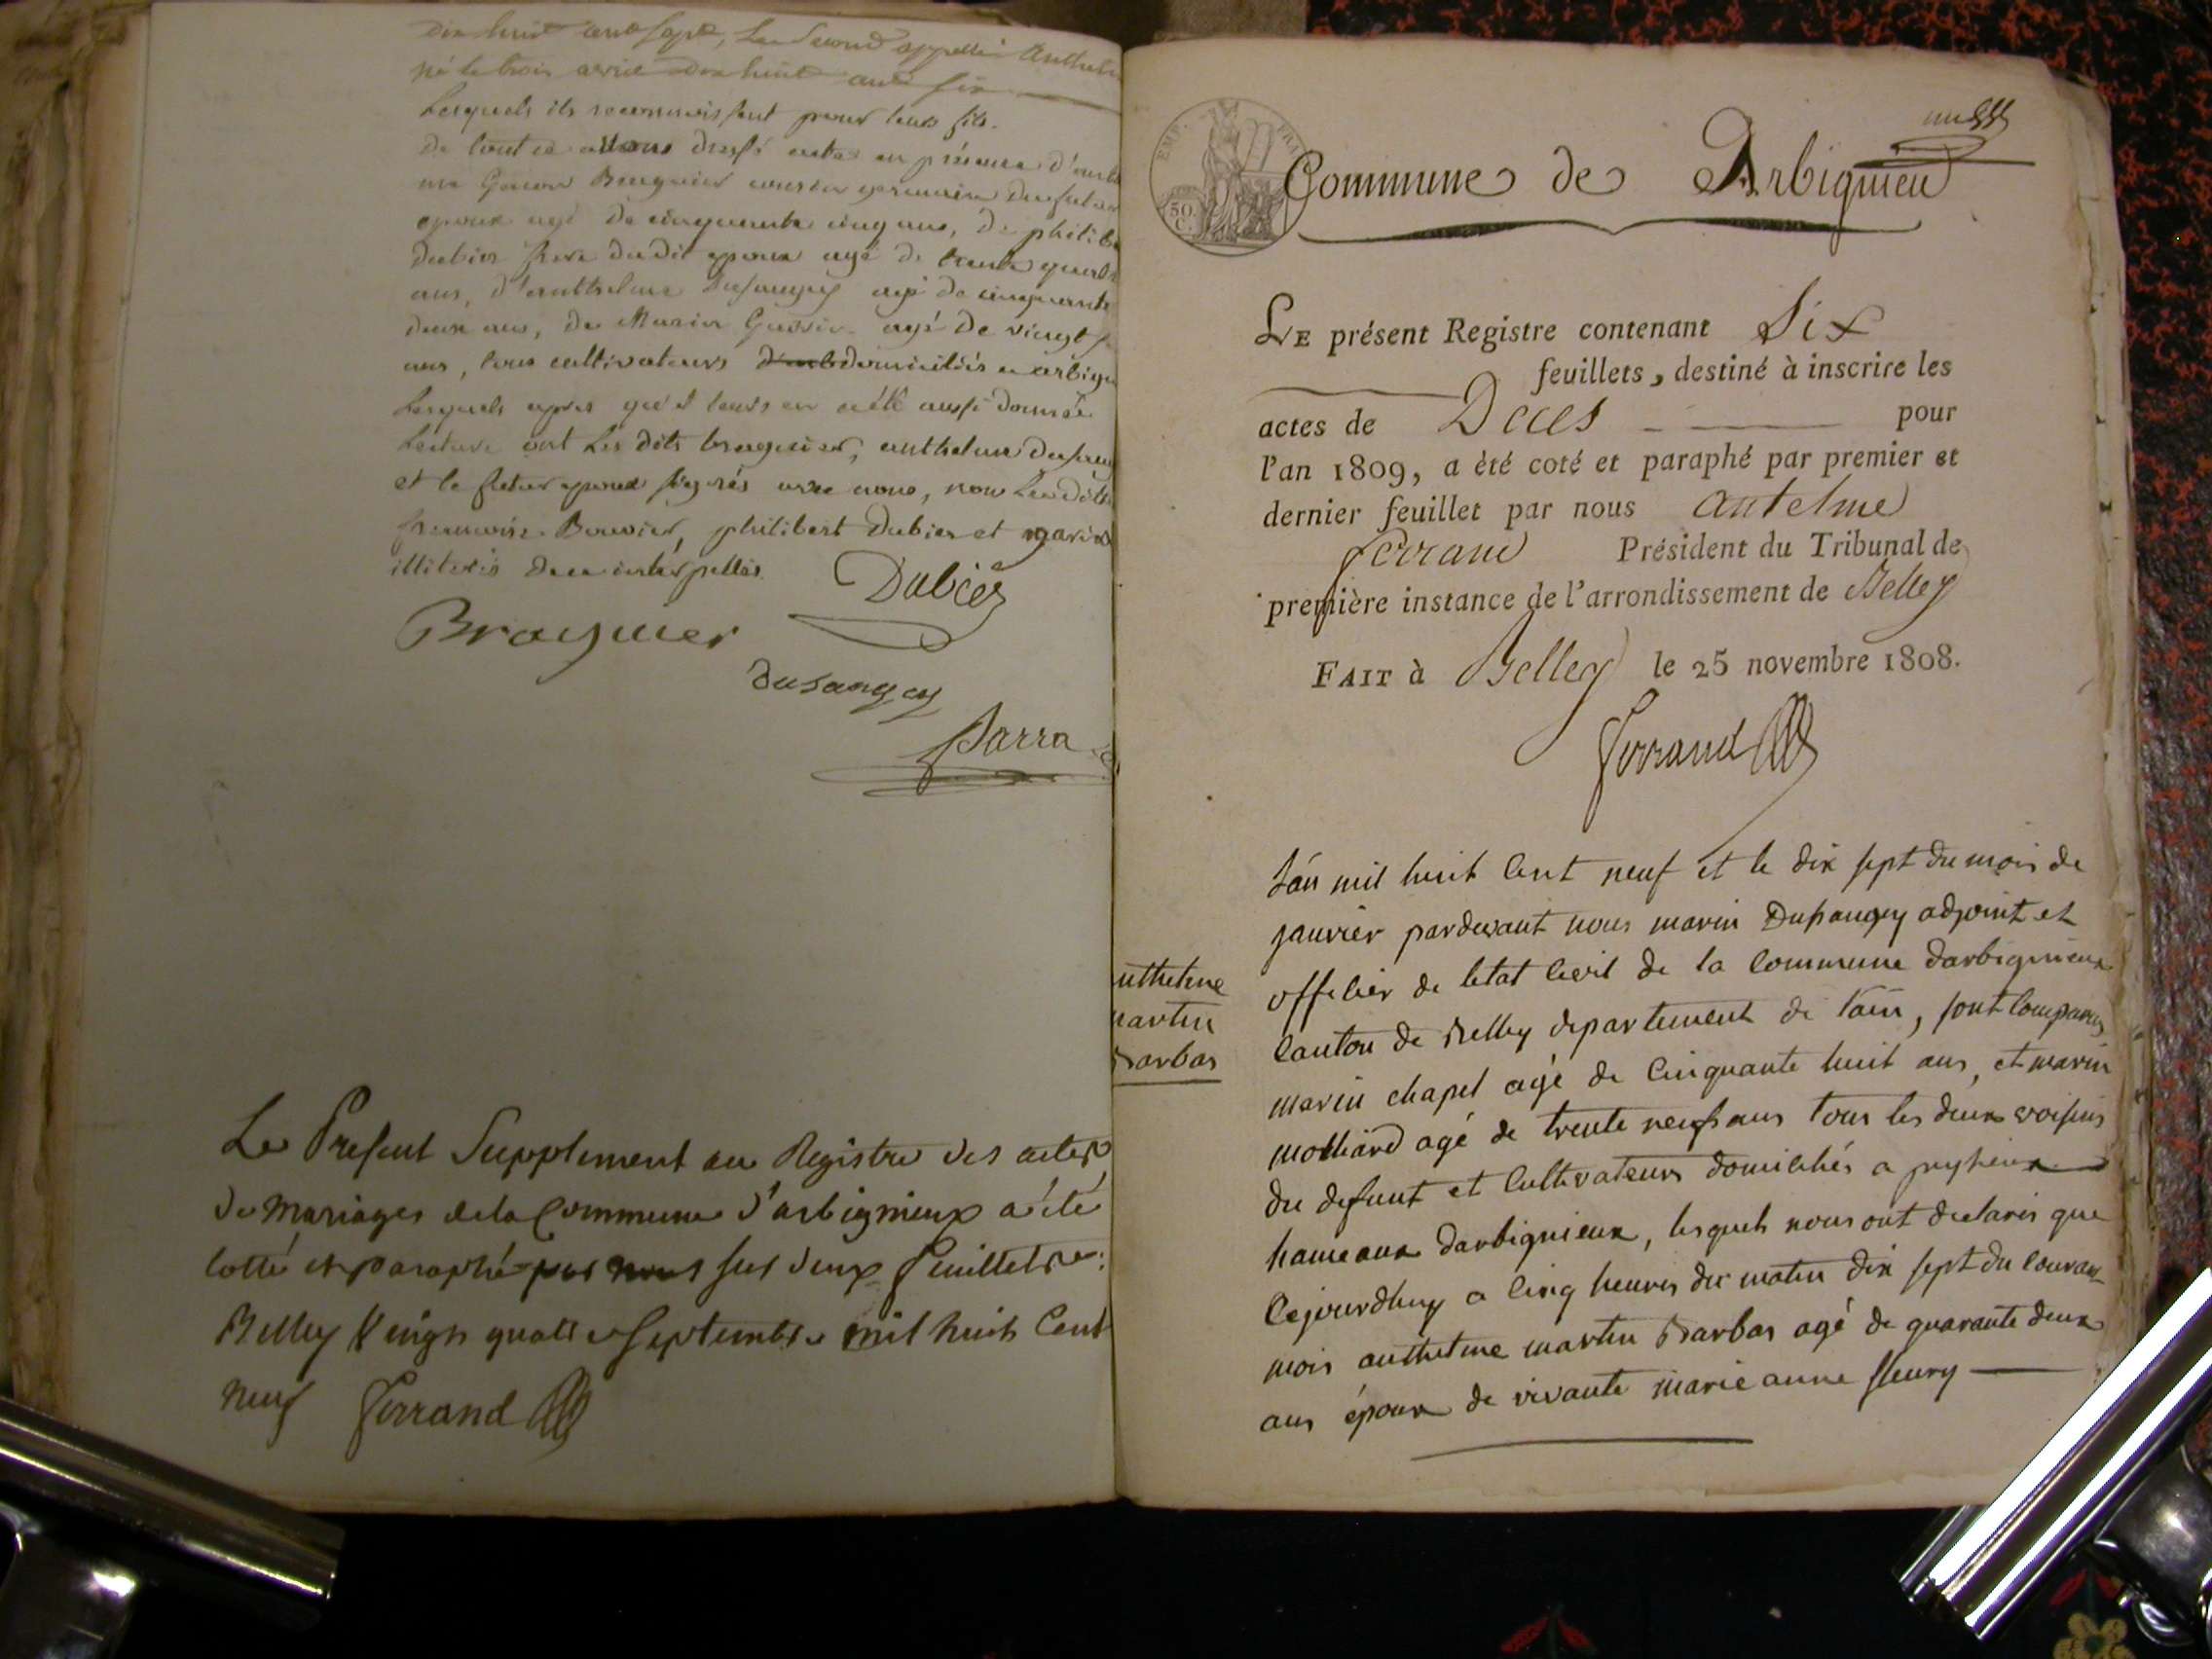 dix huit cent sept, Le Second appellé Anthelm
né le trois avril dix huit cent six
Lesquels ils reconnoissent pour leurs fils.
De tout ce avons dressé acte en présence d'anth
me Bragnier cousin germain du futur
epoux agé de cinquante cinq ans, De philib
Dubier frere dudit epoux agé de trente quatre
ans, D'anthelme Dusaugey agé de cinquante
deux ans, de Marin agé De vingt
ans, tous cultivateurs domiciliés a arbign
Lesquels apres qu'il leurs en a été aussi donnée
Lecture ont Les dits bragnier, anthelme Dusaug
et le futur epoux signés avec nous, non Les dits
francoise Bouvier, philibert Dubier et marin
illiterés de ce interpellés.
Dubier
Bragnier
dusaugey
Parra
Le Présent Supplément au Registre des actes
de Mariages de la Commune d'arbignieux a été
cotté et paraphé par nous sur deux feuillets
Belley Vingt quatre Septembre mil huit Cent
neuf Ferrand
un
EMP. FRA
50. C.
Commune de Arbignieu
LE présent Registre contenant Six
feuillets, destiné à inscrire les
actes de Deces pour
l'an 1809, a été coté et paraphé par premier et
dernier feuillet par nous antelme
ferrand Président du Tribunal de
première instance de l'arrondissement de Belley
FAIT à Belley le 25 novembre 1808.
Ferrand
L'an mil huit cent neuf et le dix sept du mois de
janvier pardevant nous marin Dusaugey adjoint et
officier de letat civil de la commune darbignieux
canton de Belley departement de l'ain, sont comparus
marin chapel agé de cinquante huit ans, et marin
molliard agé de trente neuf ans tous les deux voisins
du defunt et cultivateurs domiciliés a peyzieux
hameaux darbignieux, lesquels nous ont declarés que
cejourdhuy a cinq heures du matin dix sept du courant
mois anthelme martin Barbas agé de quarante deux
ans époux de vivante marie anne fleury
nthelme
martin
Barbas